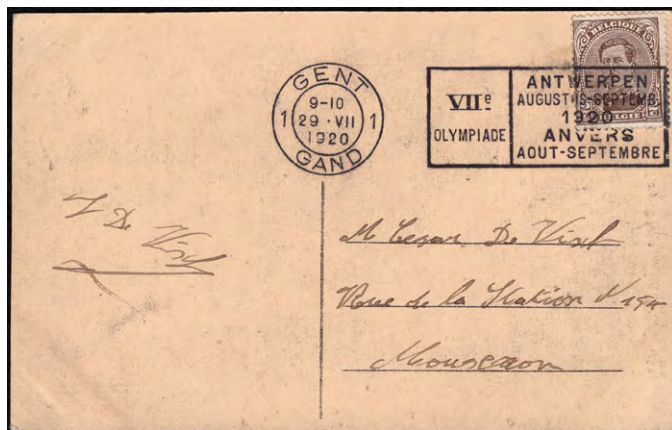 BELGIQUE
GENT
1 9-10 1
29 · VII
1920
GAND
VIIe
OLYMPIADE
ANTWERPEN
AUGUSTUS-SEPTEMB.
1920
ANVERS
AOUT-SEPTEMBRE
BELGIË
De Visch
M De Visch
Rue de la Station
Mouscron